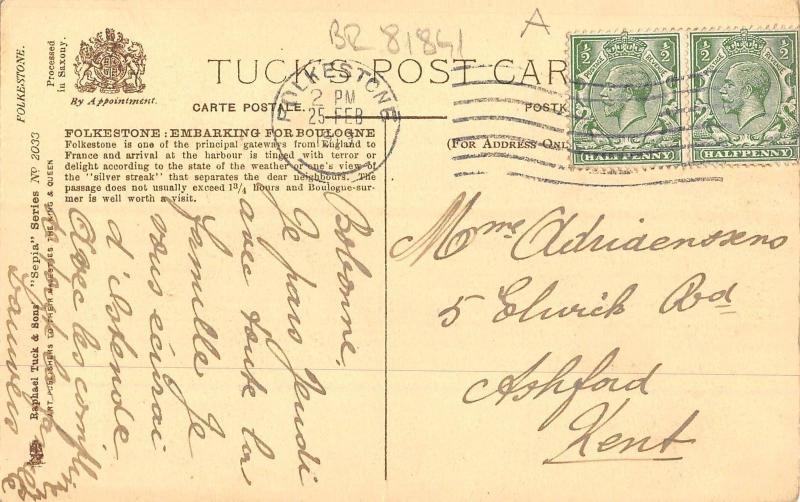 BR 81841
A
TUCK'S POST CAR
CARTE POSTALE.
POSTK
(FOR ADDRESS ONL
By Appointment.
Processed
in Saxony.
FOLKESTONE.
FOLKESTONE
2 PM
25 FEB
½ ½
POSTAGE REVENUE
HALFPENNY
½ ½
POSTAGE REVENUE
HALFPENNY
FOLKESTONE: EMBARKING FOR BOULOGNE
Folkestone is one of the principal gateways from England to
France and arrival at the harbour is tinged with terror or
delight according to the state of the weather or one's view of
the "silver streak" that separates the dear neighbours. The
passage does not usually exceed 1¾ hours and Boulogne-sur-
mer is well worth a visit.
Raphael Tuck & Sons' "Sepia" Series Nº 2033
ART PUBLISHERS TO THEIR MAJESTIES THE KING & QUEEN
Bobonne.
Je pars Jeudi
avec toute la
famille Je
vous écrirai
d'Ostende
les
Mme Adriaenssens
5 Elwick Rd
Ashford
Kent